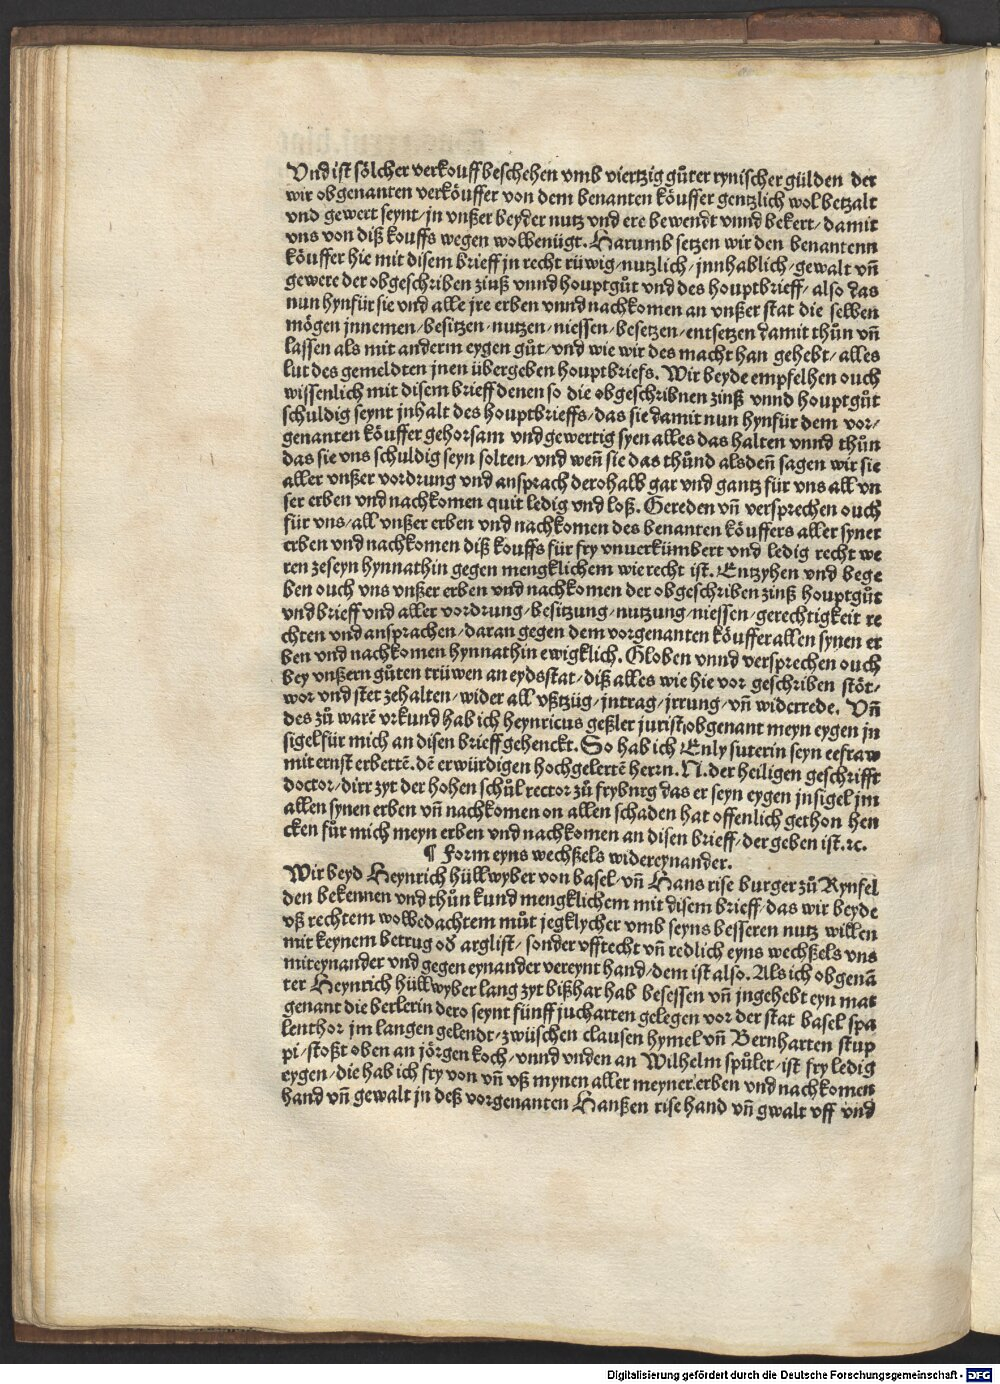 Vnd ist sölcher verkouff beschehen vmb viertzig gůter rynischer gülden der
wir obgenanten verköuffer von dem benanten köuffer gentzlich wol betzalt
vnd gewert seynt/ jn vnßer beyder nutz vnd ere bewendt vnnd bekert/ damit
vns von diß kouffs wegen wolbenügt. Harumb setzen wir den benantenn
köuffer hie mit disem brieff jn recht rüwig/ nutzlich/ jnnhablich/ gewalt vñ
gewere der obgeschriben zinß vnnd houptgůt vnd des houptbrieff/ also das
nun hynfür sie vnd alle jre erben vnnd nachkomen an vnßer stat die selben
mögen jnnemen/ besitzen/ nutzen/ niessen/ besetzen/ entsetzen damit thůn vñ
lassen als mit anderm eygen gůt/ vnd wie wir des macht han gehebt/ alles
lut des gemeldten jnen übergeben houptbriefs. Wir beyde empfelhen ouch
wissenlich mit disem brieff denen so die obgeschribnen zinß vnnd houptgůt
schuldig seynt jnhalt des houptbrieffs/ das sie damit nun hynfür dem vor/
genanten köuffer gehorsam vnd gewertig syen alles das halten vnnd thůn
das sie vns schuldig seyn solten/ vnd weñ sie das thůnd alsdeñ sagen wir sie
aller vnßer vordrung vnd ansprach derohalb gar vnd gantz für vns all vn
ser erben vnd nachkomen quit ledig vnd loß. Gereden vñ versprechen ouch
für vns/ all vnßer erben vnd nachkomen des benanten köuffers aller syner
erben vnd nachkomen diß kouffs für fry vnuerkümbert vnd ledig recht we
ren zeseyn hynnathin gegen mengklichem wie recht ist. Entzyhen vnd bege
ben ouch vns vnßer erben vnd nachkomen der obgeschriben zinß houptgůt
vnd brieff vnd aller vordrung/ besitzung/ nutzung/ niessen/ gerechtigkeit re
chten vnd ansprachen/ daran gegen dem vorgenanten köuffer allen synen er
ben vnd nachkomen hynnathin ewigklich. Globen vnnd versprechen ouch
bey vnßern gůten trüwen an eydsstat/ diß alles wie hie vor geschriben stöt/
wor vnd stet zehalten/ wider all vßtzüg/ jntrag/ jrrung/ vñ widerrede. Vñ
des zů warē vrkund hab ich heynricus geßler jurist/ obgenant meyn eygen jn
sigel für mich an disen brieff gehenckt. So hab ich Enly suterin seyn eefraw
mit ernst erbettē. dē erwürdigen hochgelertē herrn. N. der heiligen geschrifft
doctor/ dirr zyt der hohen schůl rector zů fryburg das er seyn eygen jnsigel jm
allen synen erben vñ nachkomen on allen schaden hat offenlich gethon hen
cken für mich meyn erben vnd nachkomen an disen brieff/ der geben ist. ⁊c.
¶ Form eyns wechßels widereynander.
Wir beyd Heynrich hüllwyber von basel/ vñ Hans rise burger zů Rynfel
den bekennen vnd thůn kund mengklichem mit disem brieff/ das wir beyde
vß rechtem wolbedachtem můt jegklycher vmb seyns besseren nutz willen
mit keynem betrug oď arglist/ sonder vffrecht vñ redlich eyns wechßels vns
miteynander vnd gegen eynander vereynt hand/ dem ist also. Als ich obgenā
ter Heynrich hüllwyber lang zyt bißhar hab besessen vñ jngehebt eyn mat
genant die berlerin dero seynt fünff jucharten gelegen vor der stat basel spa
lenthor jm langen gelendt/ zwüschen clausen hymel vñ Bernharten stup
pi/ stoßt oben an jörgen koch/ vnnd vnden an Wilhelm spůler/ ist fry ledig
eygen/ die hab ich fry von vñ vß mynen aller meyner erben vnd nachkomen
hand vñ gewalt jn deß vorgenanten Hanßen rise hand vñ gwalt vff vnd
Digitalisierung gefördert durch die Deutsche Forschungsgemeinschaft - DFG